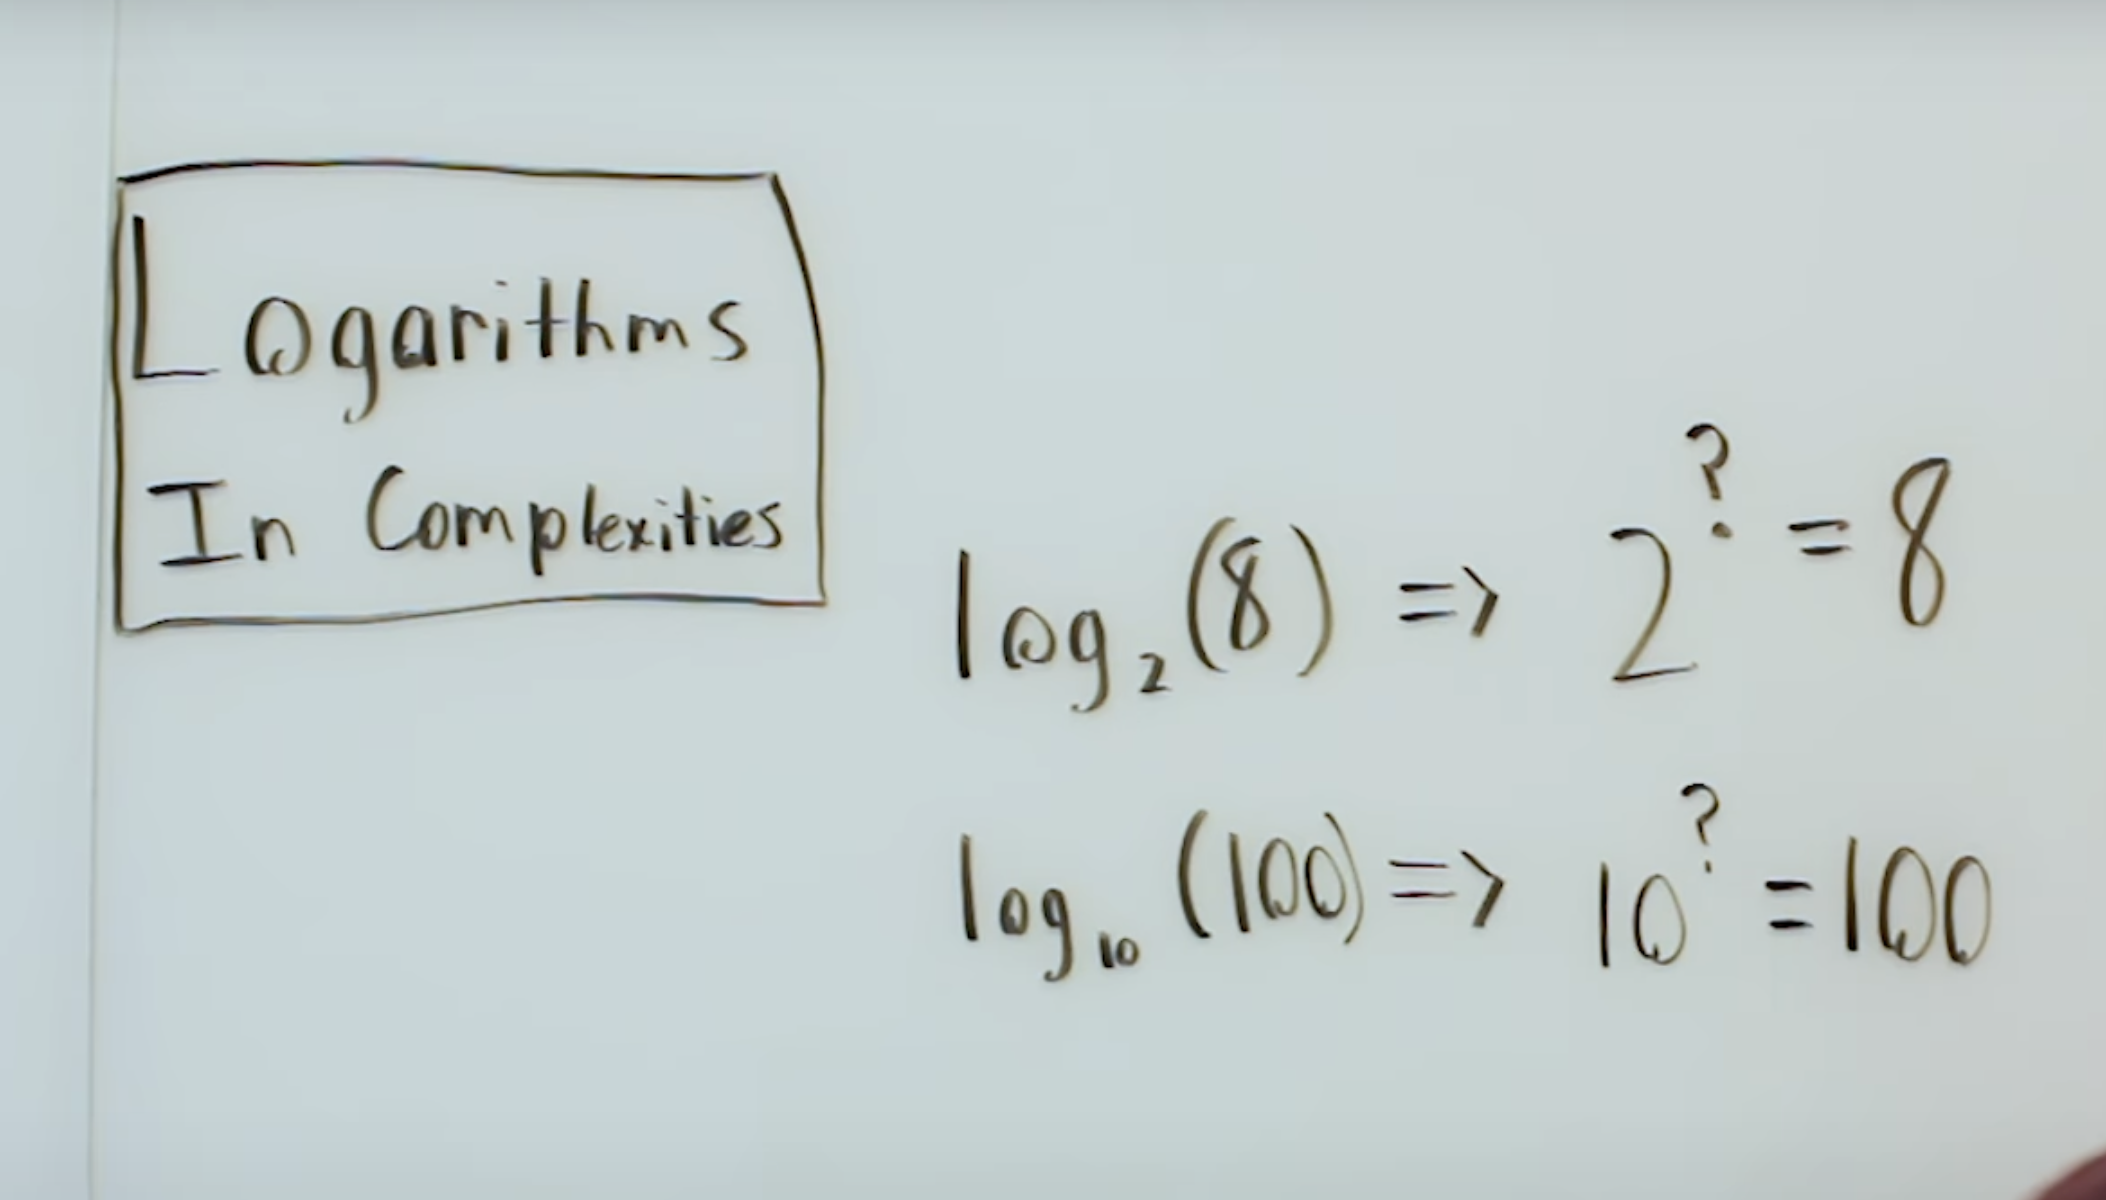 Logarithms
In Complexities
log₂(8) => 2^? = 8
log₁₀(100) => 10^? = 100